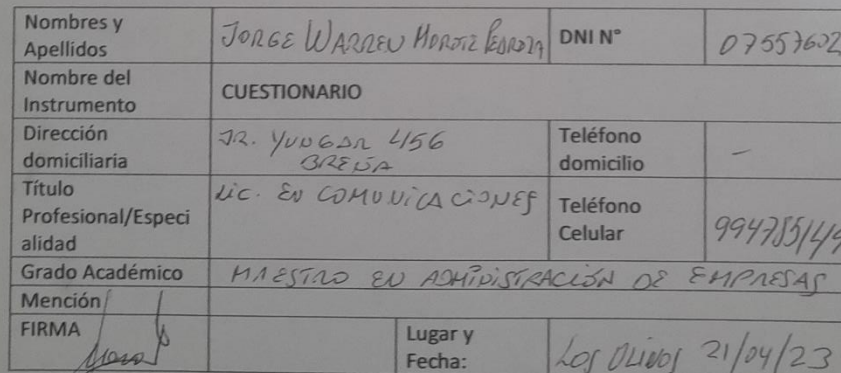 Nombres y Apellidos JORGE WARREN PEDROZA DNI N° 07557602
Nombre del Instrumento CUESTIONARIO
Dirección domiciliaria JR. YUNGAR 456 BREÑA Teléfono domicilio -
Título Profesional/Especialidad Lic. EN COMUNICACIONES Teléfono Celular
Grado Académico MAESTRO EN ADMINISTRACIÓN DE EMPRESAS
Mención
FIRMA Lugar y Fecha: LOS OLIVOS 21/04/23